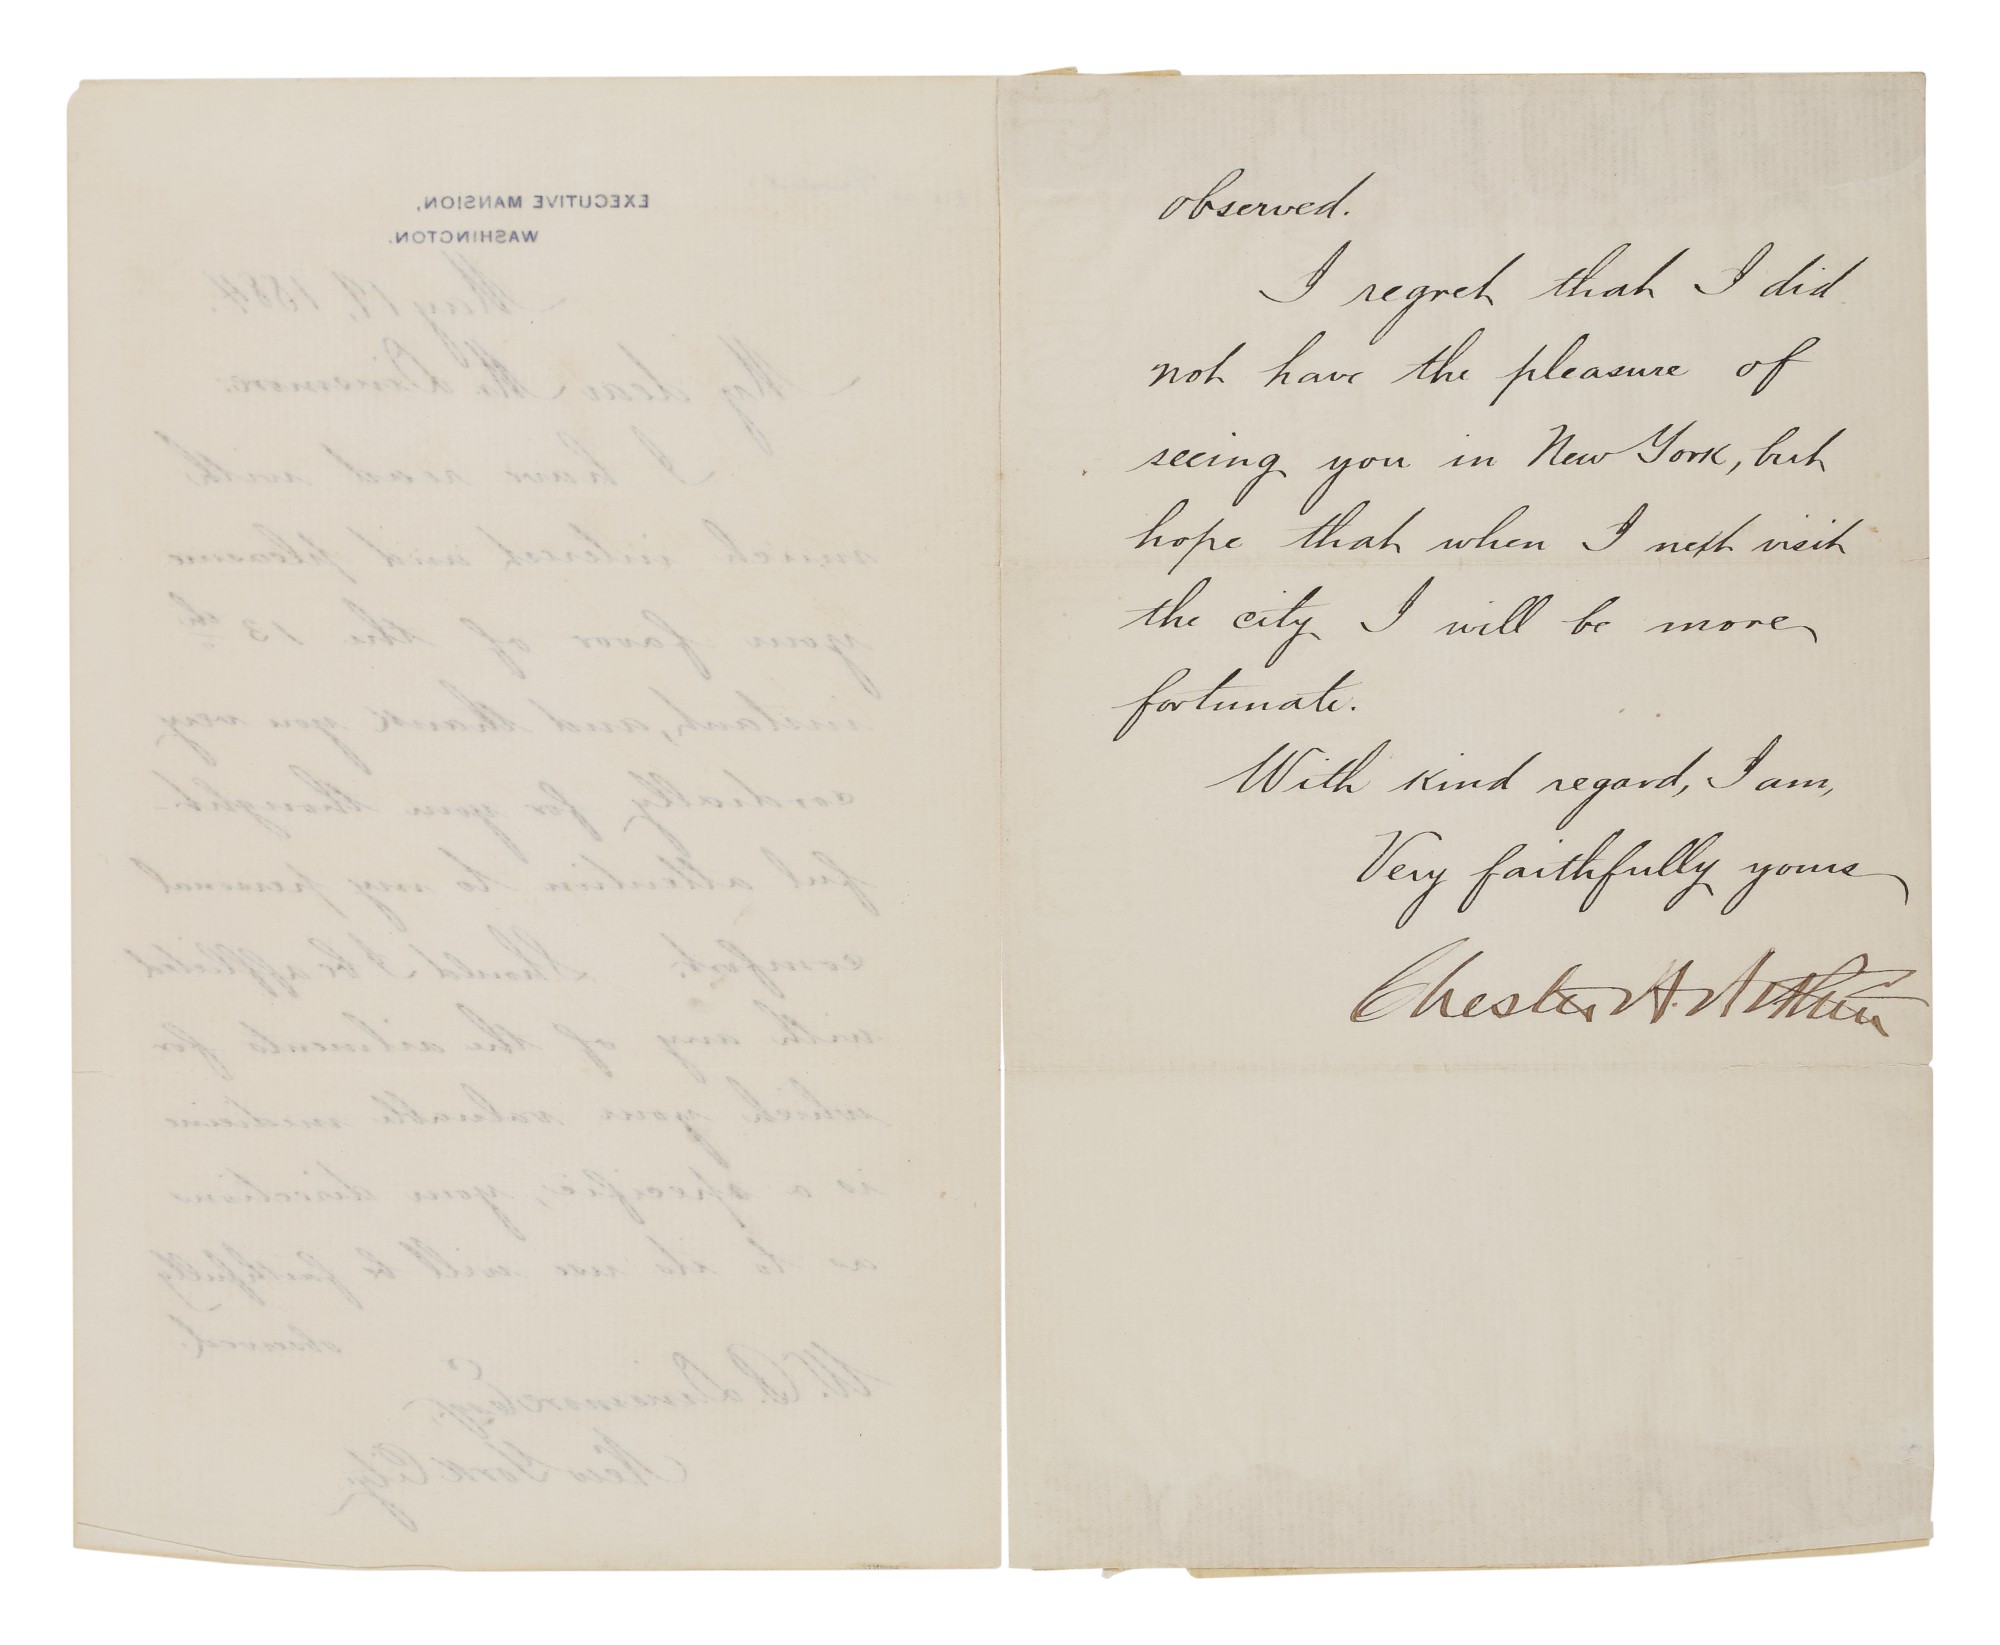 EXECUTIVE MANSION,
WASHINGTON.
May 19, 1884.
My dear Mr. Dinsmore:
I have read with
much interest and pleasure
your favor of the 13th
instant, and thank you very
cordially for your thought-
ful attention to my personal
comfort. Should I be afflicted
with any of the ailments for
which your valuable medicine
is a specific, your directions
as to its use will be faithfully
observed.
W. B. Dinsmore Esqr.
New York City
observed.
I regret that I did
not have the pleasure of
seeing you in New York, but
hope that when I next visit
the city I will be more
fortunate.
With kind regard, I am,
Very faithfully yours
Chester A. Arthur